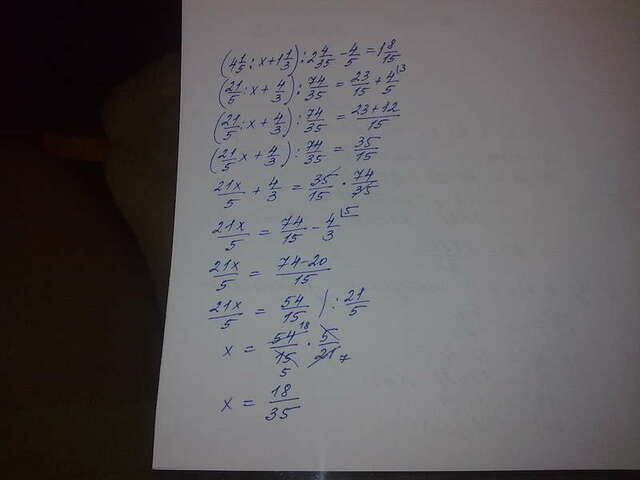 (4 1/5 : x + 1 1/3) : 2 4/35 - 4/5 = 1 8/15
(21/5 : x + 4/3) : 74/35 = 23/15 + 4/5 |3
(21/5 : x + 4/3) : 74/35 = 23+12/15
(21/5 x + 4/3) : 74/35 = 35/15
21x/5 + 4/3 = 35/15 · 74/35
21x/5 = 74/15 - 4/3 |5
21x/5 = 74-20/15
21x/5 = 54/15 | : 21/5
x = 54 18/15 5 · 5/21 7
x = 18/35